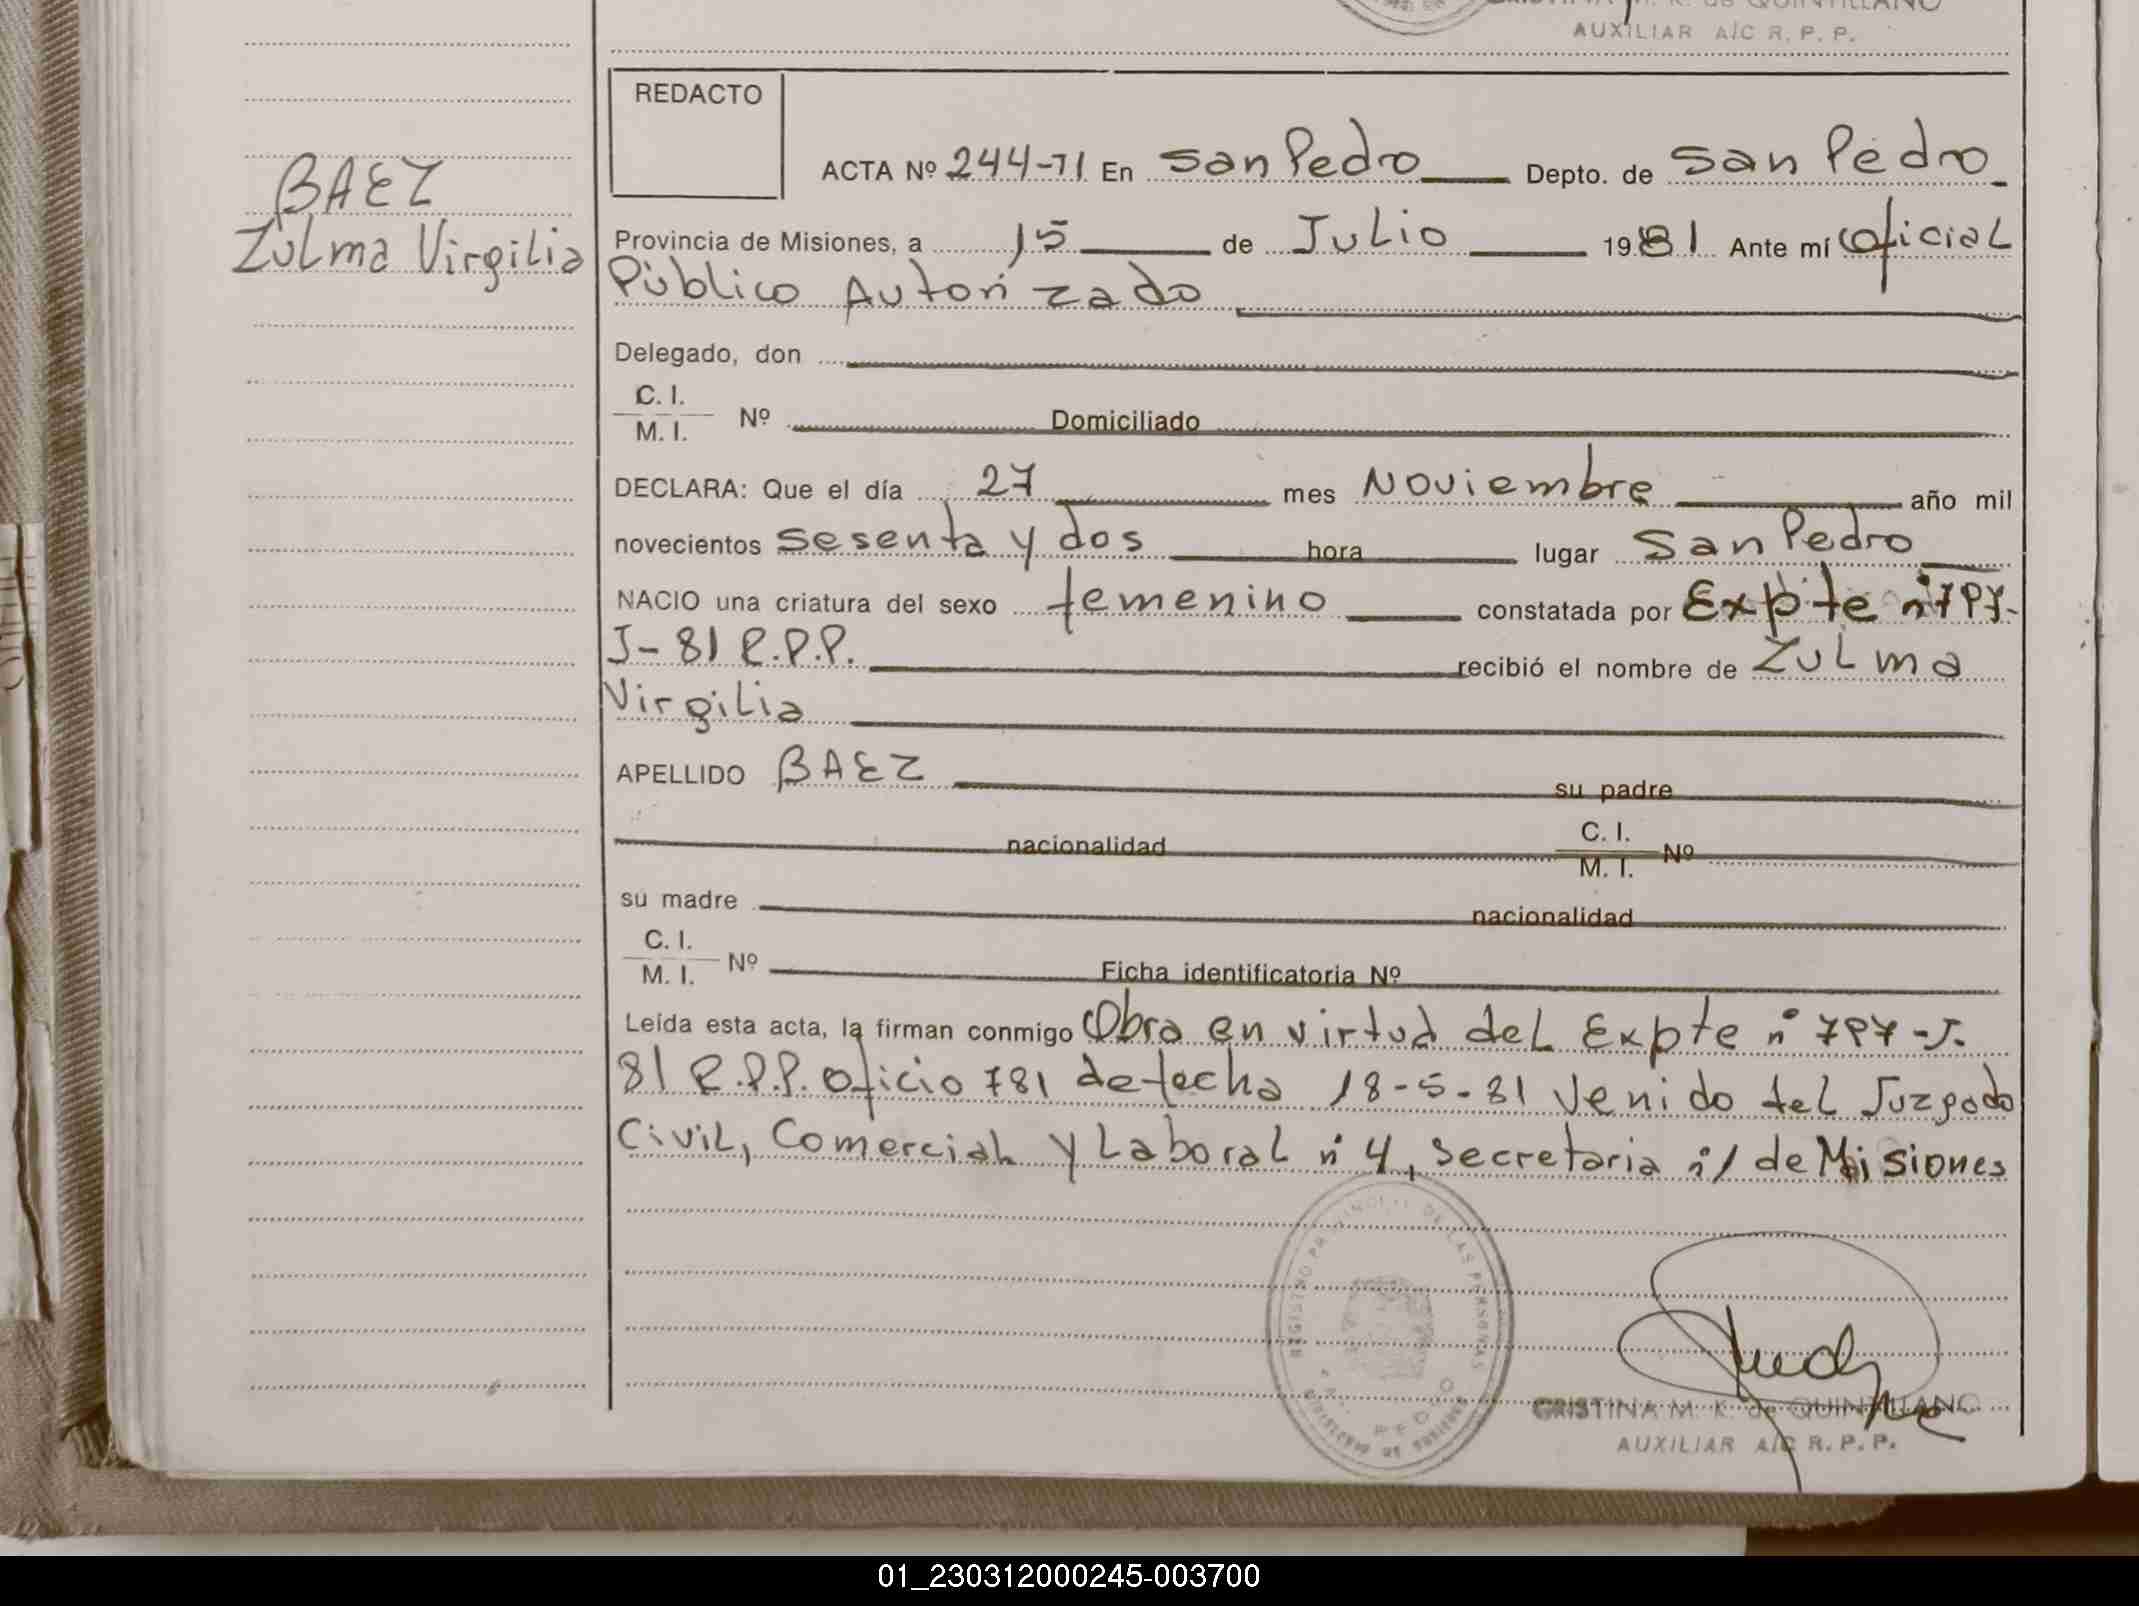 CRISTINA M. K. de QUINTILLANO
AUXILIAR A/C R. P. P.
REDACTO
BAEZ
Zulma Virgilia
ACTA Nº 244-71 En San Pedro Depto. de San Pedro
Provincia de Misiones, a 15 de Julio 1981 Ante mí Oficial
Público Autorizado
Delegado, don
C. I.
M. I. Nº Domiciliado
DECLARA: Que el día 27 mes Noviembre año mil
novecientos sesenta y dos hora lugar San Pedro
NACIO una criatura del sexo femenino constatada por Expte nº 797-
J-81 R.P.P. recibió el nombre de Zulma
Virgilia
APELLIDO BAEZ su padre
nacionalidad C. I.
M. I. Nº
su madre nacionalidad
C. I.
M. I. Nº Ficha identificatoria Nº
Leída esta acta, la firman conmigo Obra en virtud del Expte nº 797-J-
81 R.P.P. oficio 781 de fecha 18-5-81 venido del Juzgado
Civil, Comercial y Laboral nº 4, Secretaria nº 1 de Misiones
REGISTRO PROVINCIAL DE LAS PERSONAS
CRISTINA M. K. de QUINTILLANO
AUXILIAR A/C R. P. P.
01_230312000245-003700